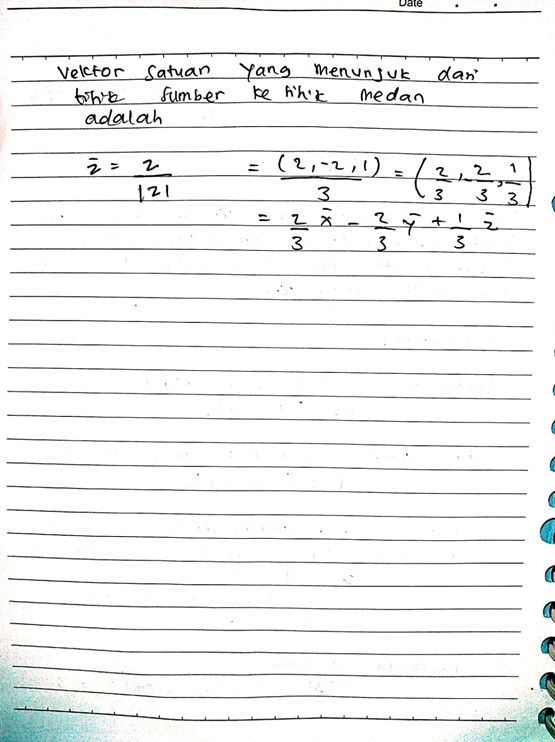 Date
Vektor satuan yang menunjuk dari
titik sumber ke titik medan
adalah
z̄ = 2/|2| = (2,-2,1)/3 = (2/3, -2/3, 1/3)
= 2/3 x̄ - 2/3 ȳ + 1/3 z̄